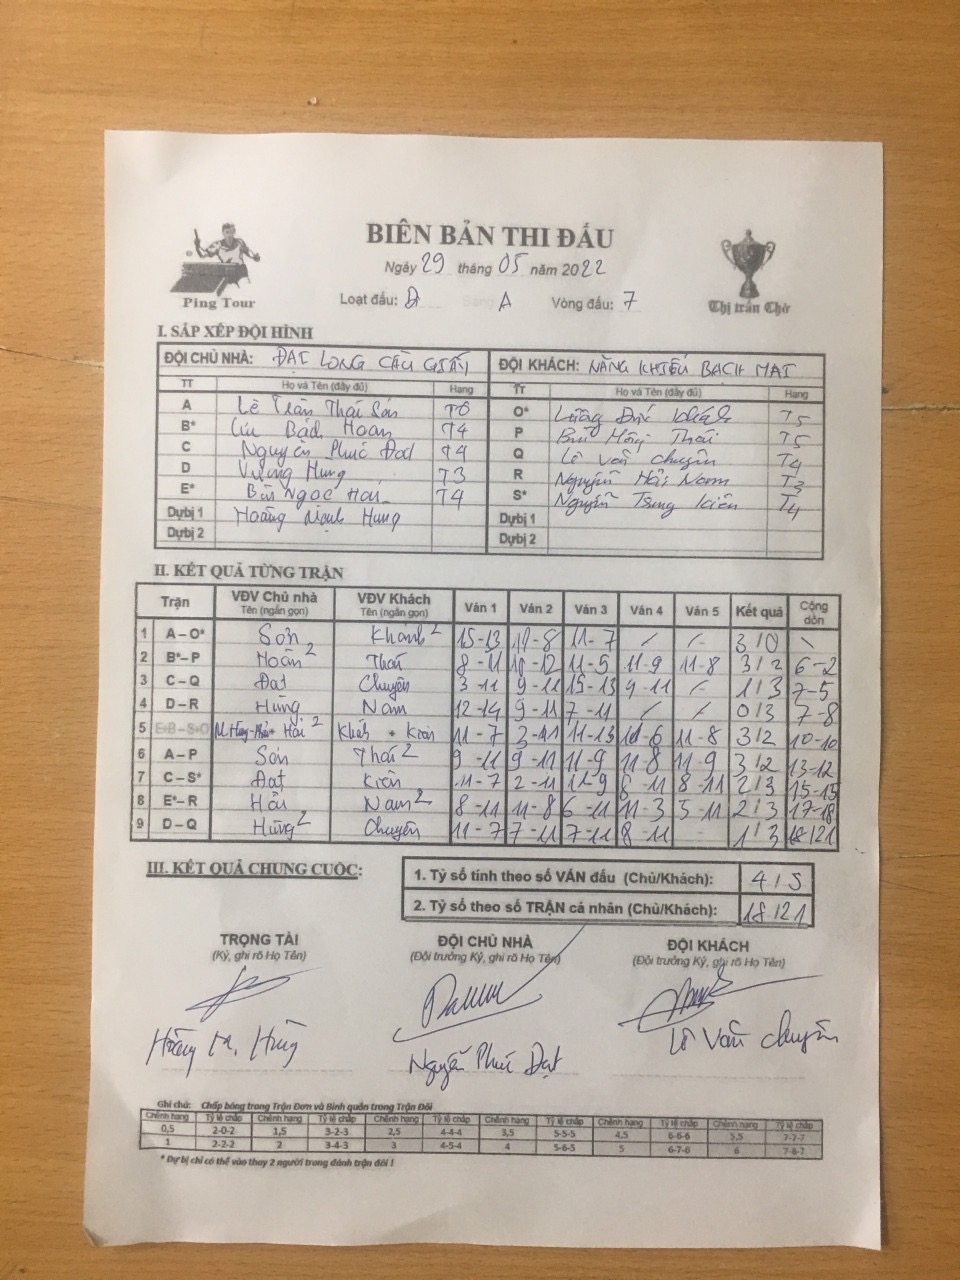 BIÊN BẢN THI ĐẤU
Ngày 29 tháng 05 năm 2022
Ping Tour
Loạt đấu: D Bảng A Vòng đấu: 7
Thị trấn Chờ
I. SẮP XẾP ĐỘI HÌNH
ĐỘI CHỦ NHÀ: ĐẠT LONG CẦU GIẤY ĐỘI KHÁCH: NĂNG KHIẾU BẠCH MAI
TT Họ và Tên (đầy đủ) Hạng TT Họ và Tên (đầy đủ) Hạng
A Lê Trần Thái Sơn T6 O* Lương Đức Khánh T5
B* Bách Hoan T4 P Bùi Hồng Thái T5
C Nguyễn Phúc Đạt T4 Q Lê Văn Chuyên T4
D Vương Hưng T3 R Nguyễn Hải Nam T3
E* Bùi Ngọc Hải T4 S* Nguyễn Trung Kiên T4
Dự bị 1 Hoàng Mạnh Hùng Dự bị 1
Dự bị 2 Dự bị 2
II. KẾT QUẢ TỪNG TRẬN
Trận VĐV Chủ nhà Tên (ngắn gọn) VĐV Khách Tên (ngắn gọn) Ván 1 Ván 2 Ván 3 Ván 4 Ván 5 Kết quả Cộng dồn
1 A – O* Sơn Khánh 2 15-13 11-8 11-7 / /- 3/0 \
2 B*– P Hoàn 2 Thái 8-11 10-12 11-5 11-9 11-8 3/2 6-2
3 C – Q Đạt Chuyên 3-11 9-11 15-13 9-11 /- 1/3 7-5
4 D – R Hùng Nam 12-14 9-11 7-11 / / 0/3 7-8
5 E+B – S+O Hải 2 Khánh + Kiên 11-7 3-11 11-13 11-8 3/2 10-10
6 A – P Sơn Thái 2 9-11 9-11 11-9 11-8 11-9 3/2 13-12
7 C – S* Đạt Kiên 11-7 2-11 8-11 2/3 15-15
8 E*– R Hải Nam 2 8-11 11-8 6-11 11-3 5-11 2/3 17-18
9 D – Q Hùng 2 Chuyên 11-7 7-11 7-11 8-11 - 1/3 18/21
III. KẾT QUẢ CHUNG CUỘC:
1. Tỷ số tính theo số VÁN đấu (Chủ/Khách): 4/5
2. Tỷ số theo số TRẬN cá nhân (Chủ/Khách): 18 21
TRỌNG TÀI ĐỘI CHỦ NHÀ ĐỘI KHÁCH
(Ký, ghi rõ Họ Tên) (Đội trưởng Ký, ghi rõ Họ Tên) (Đội trưởng Ký, ghi rõ Họ Tên)
Hoàng M. Hùng Nguyễn Phúc Đạt Lê Văn Chuyên
Ghi chú: Chấp bóng trong Trận Đơn và Bình quân trong Trận Đôi
Chênh hạng Tỷ lệ chấp Chênh hạng Tỷ lệ chấp Chênh hạng Tỷ lệ chấp Chênh hạng Tỷ lệ chấp Chênh hạng Tỷ lệ chấp Chênh hạng Tỷ lệ chấp
0,5 2-0-2 1,5 3-2-3 2,5 4-4-4 3,5 5-5-5 4,5 6-6-6 5,5 7-7-7
1 2-2-2 2 3-4-3 3 4-5-4 4 5-6-5 5 6-7-6 6 7-8-7
* Dự bị chỉ có thể vào thay 2 người trong đánh trận đôi !